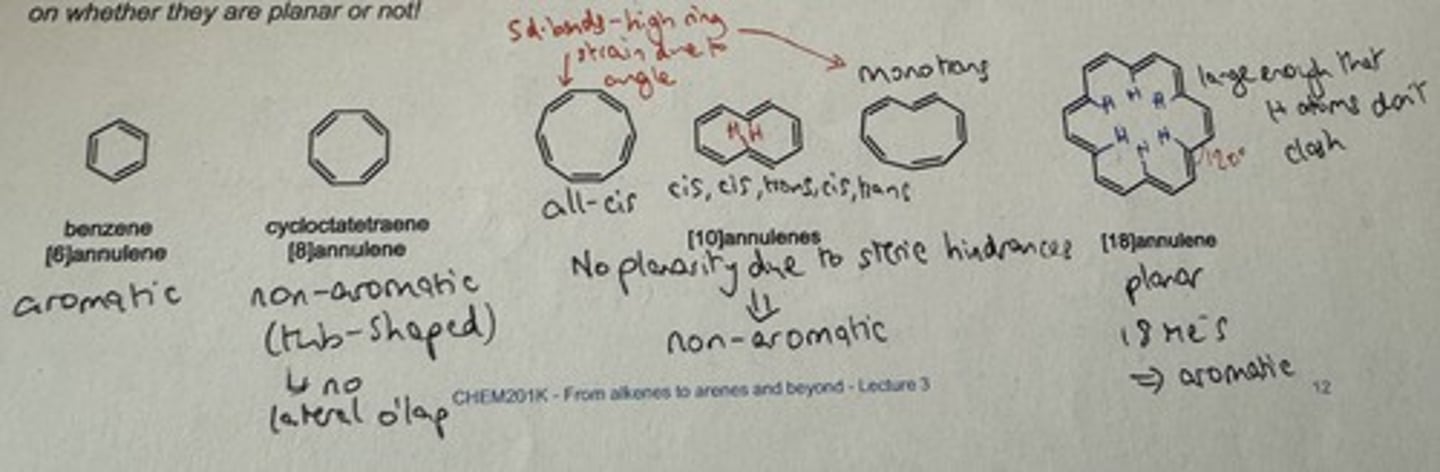 on whether they are planar or not!
5 d.bonds - high ring
strain due to
angle
monotrans
large enough that
H atoms don't
clash
H H H
H H H
H H
120°
all-cis
cis, cis, trans, cis, trans
benzene
[6]annulene
cycloctatetraene
[8]annulene
[10]annulenes
[18]annulene
aromatic
non-aromatic
(tub-shaped)
↳ no
lateral o'lap
No planarity due to steric hindrances
⇓
non-aromatic
planar
18 πe⁻s
⇒ aromatic
CHEM201K - From alkenes to arenes and beyond - Lecture 3
12